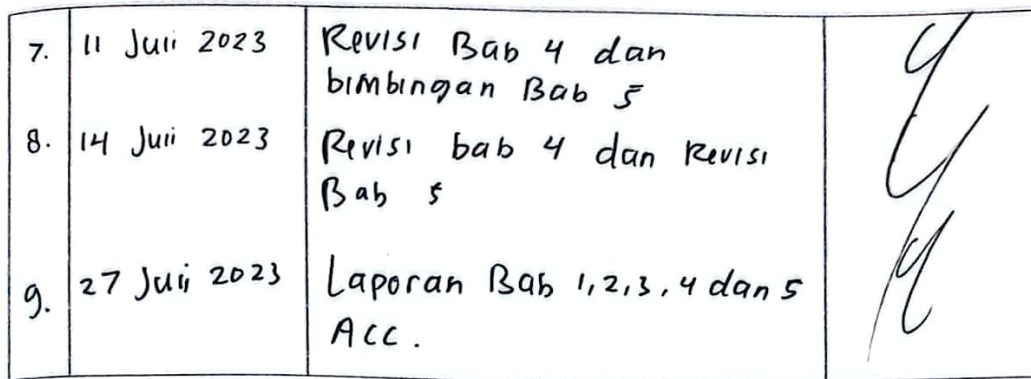 7. 11 Juli 2023 Revisi Bab 4 dan
bimbingan Bab 5
8. 14 Juli 2023 Revisi bab 4 dan Revisi
Bab 5
9. 27 Juli 2023 Laporan Bab 1,2,3,4 dan 5
ACC.